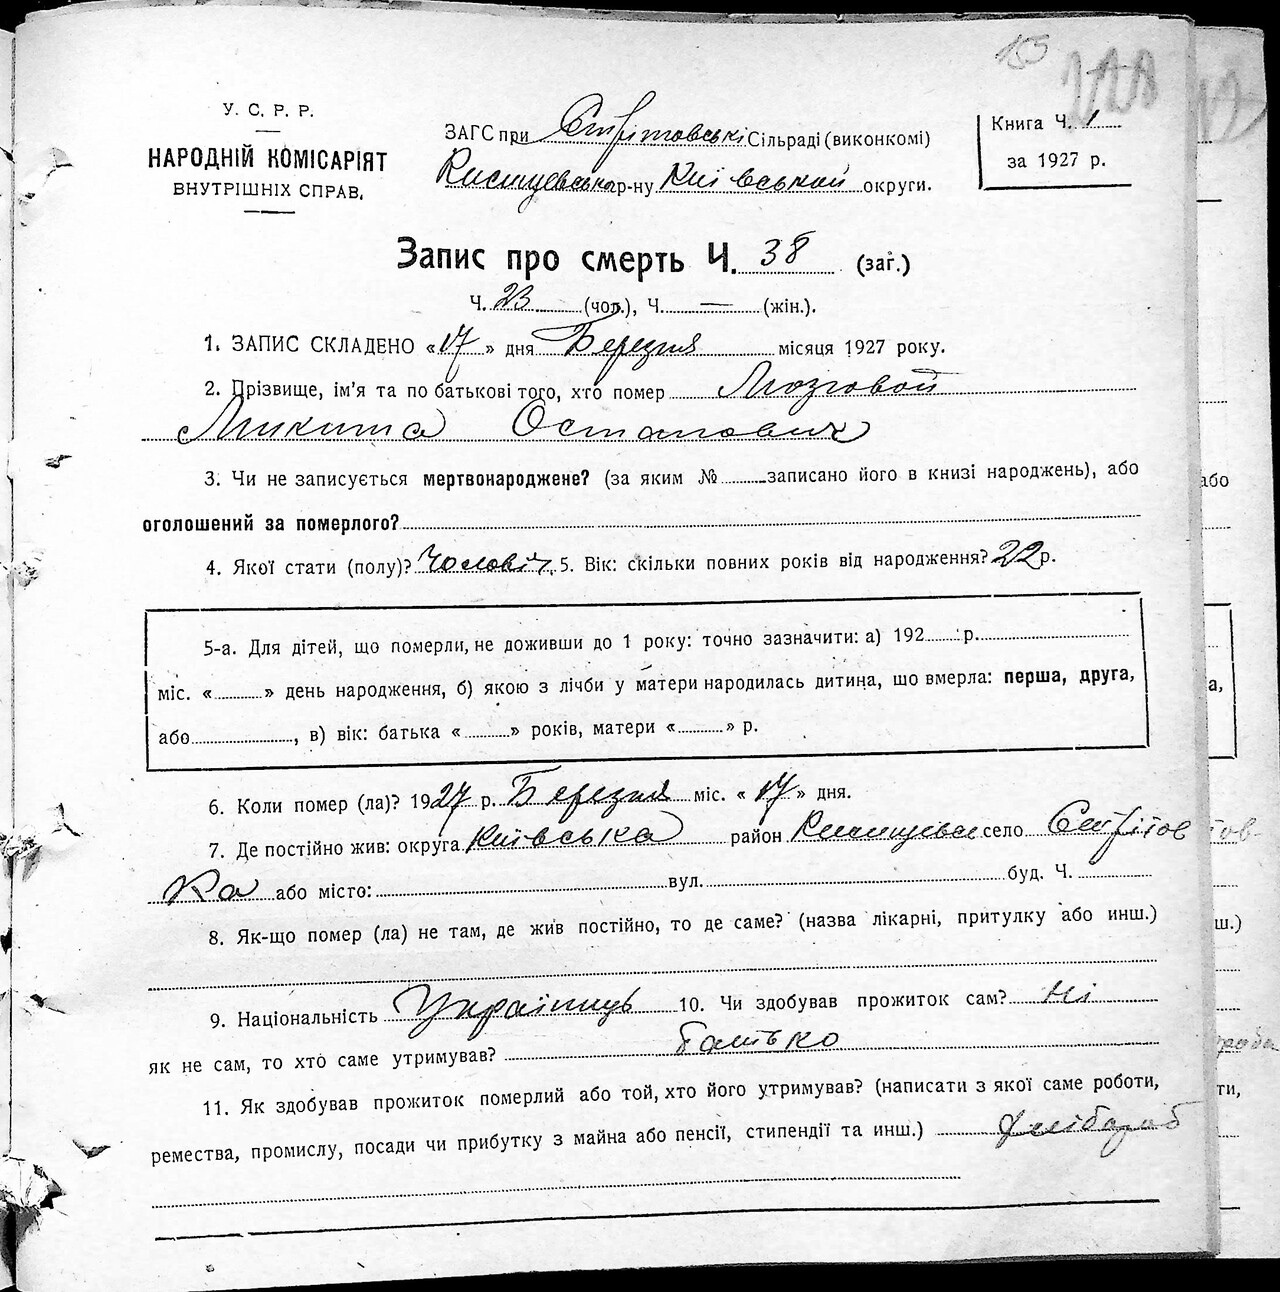 15
У. С. Р. Р.
НАРОДНІЙ КОМІСАРІЯТ
ВНУТРІШНІХ СПРАВ.
ЗАГС при Сільраді (виконкомі)
р-ну Київській округи.
Книга Ч. 1
за 1927 р.
Запис про смерть Ч. 38 (заг.)
Ч. 23 (чол.), Ч. — (жін.).
1. ЗАПИС СКЛАДЕНО «17» дня Березня місяця 1927 року.
2. Прізвище, ім'я та по батькові того, хто помер Мозговой
Микита Остапович
3. Чи не записується мертвонароджене? (за яким № записано його в книзі народжень), або
оголошений за померлого?
4. Якої стати (полу)? Чоловіч. 5. Вік: скільки повних років від народження? 22 р.
5-а. Для дітей, що померли, не доживши до 1 року: точно зазначити: а) 192 р.
міс. « » день народження, б) якою з лічби у матери народилась дитина, що вмерла: перша, друга,
або , в) вік: батька « » років, матери « » р.
6. Коли помер (ла)? 1927 р. Березня міс. «17» дня.
7. Де постійно жив: округа Київська район село
ка або місто: вул. буд. Ч.
8. Як-що помер (ла) не там, де жив постійно, то де саме? (назва лікарні, притулку або инш.)
9. Національність Українець 10. Чи здобував прожиток сам? Ні
як не сам, то хто саме утримував? батько
11. Як здобував прожиток померлий або той, хто його утримував? (написати з якої саме роботи,
ремества, промислу, посади чи прибутку з майна або пенсії, стипендії та инш.) хлібороб